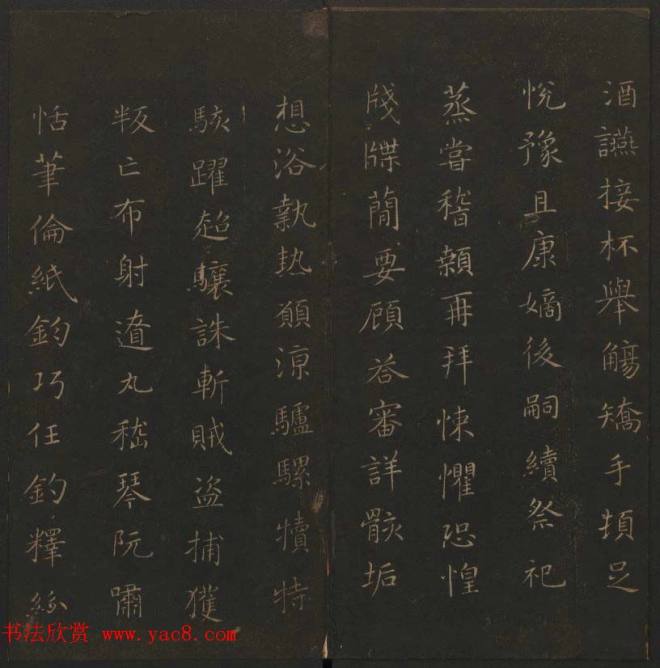 酒讌接杯舉觴矯手頓足
悅豫且康嫡後嗣續祭祀
蒸嘗稽顙再拜悚懼恐惶
牋牒蕳要顧荅審詳骸垢
想浴執熱願涼驢騾犢特
駭躍超驤誅斬賊盜捕獲
叛亡布射遼丸嵇琴阮嘯
恬筆倫紙鈞巧任釣釋紛
书法欣赏 www.yac8.com